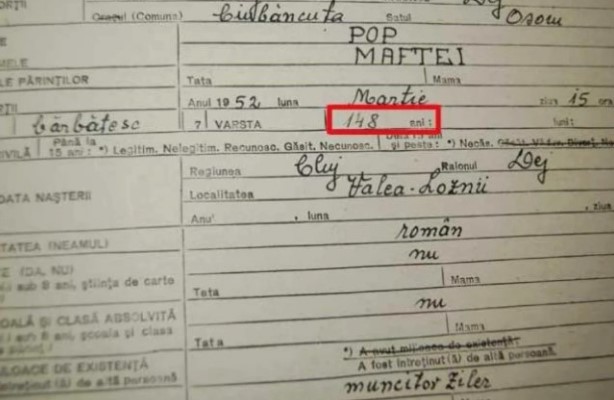 Orașul (Comuna) Ciubăncuța Satul Osoiu
POP
MAFTEI
LE PĂRINȚILOR Tata Mama
Anul 1952 luna Martie ziua 15 ora
bărbătesc 7 VARSTA 148 ani: luni:
IVILĂ Până la 15 ani: *) Legitim. Nelegitim. Recunosc. Găsit. Necunosc. și peste: *) Necăs.
Regiunea Cluj Raionul Dej
DATA NAȘTERII Localitatea Valea-Loznii
Anul , luna , ziua
TATEA (NEAMUL) român
E (DA, NU) nu
sub 8 ani, știința de carte Tata Mama
OALĂ ȘI CLASĂ ABSOLVITĂ nu
sub 8 ani, școala și clasa Tata Mama
*) A avut mijloace de existență:
LOACE DE EXISTENȚĂ A fost întreținut(ă) de altă persoană.
întreținut (ă) de altă persoană muncitor ziler